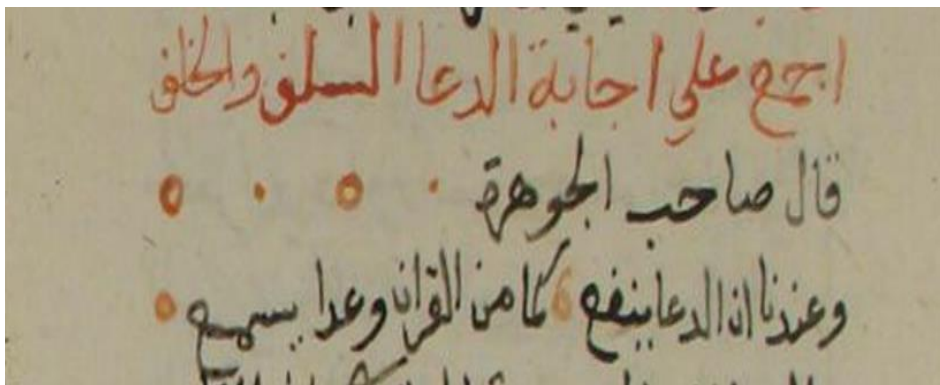 اجمع علي اجابة الدعا السلف والخلف
قال صاحب الجوهرة
وعندنا ان الدعا ينفع كما من القران وعدا يسمع